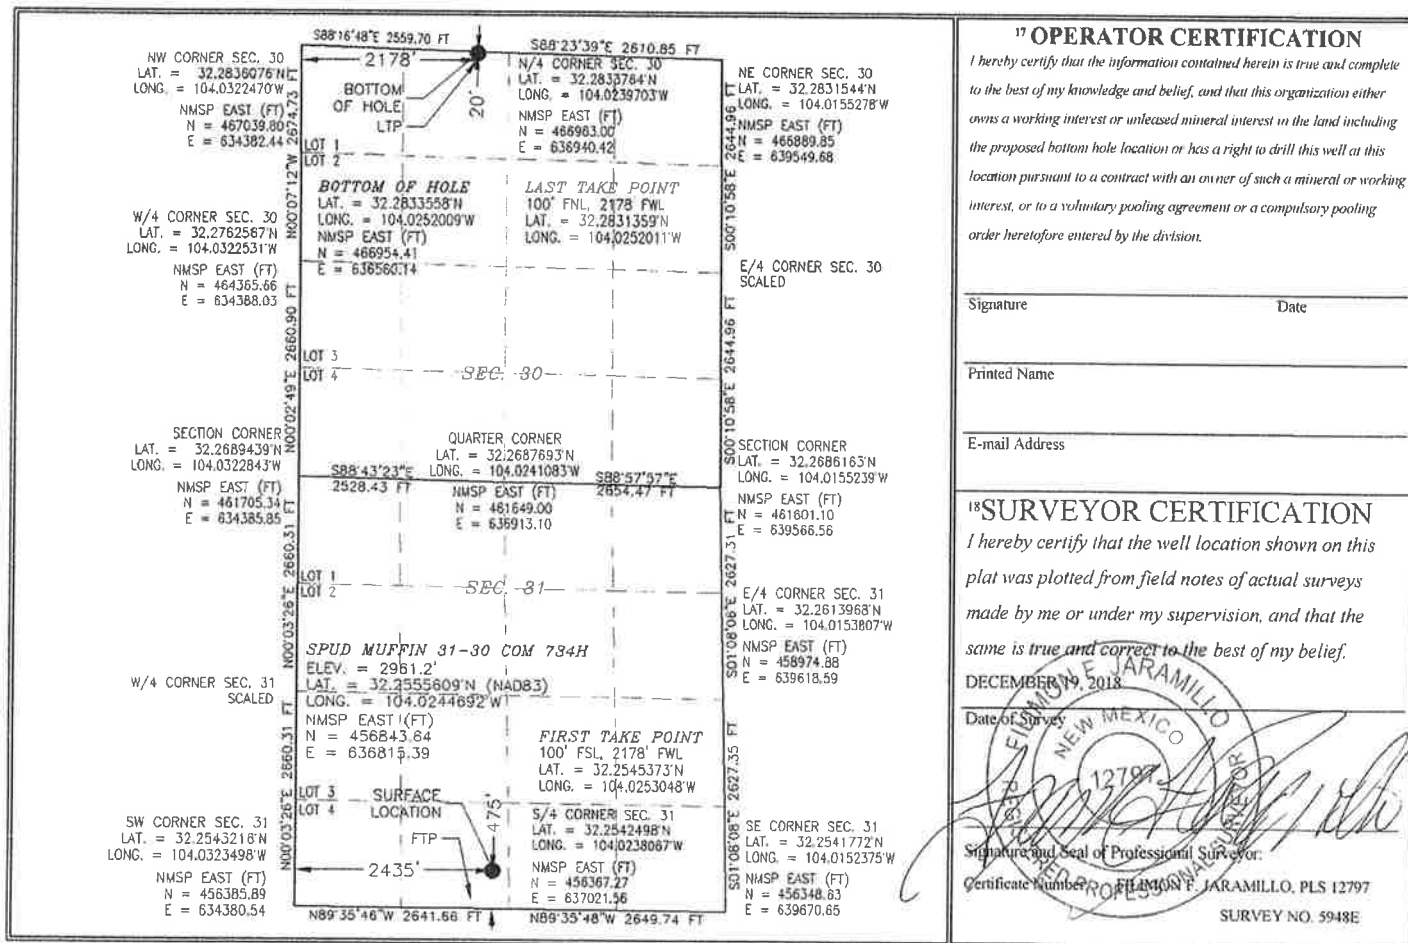 S88°16'48"E 2559.70 FT
S88°23'39"E 2610.85 FT
NW CORNER SEC. 30
LAT. = 32.2836076'N
LONG. = 104.0322470'W
NMSP EAST (FT)
N = 467039.80
E = 634382.44
2178'
BOTTOM
OF HOLE
LTP
20'
N/4 CORNER SEC. 30
LAT. = 32.2833784'N
LONG. = 104.0239703'W
NMSP EAST (FT)
N = 466963.00
E = 636940.42
NE CORNER SEC. 30
LAT. = 32.2831544'N
LONG. = 104.0155278'W
NMSP EAST (FT)
N = 466889.85
E = 639549.68
N00°07'12"W 2674.73 FT
S00°10'58"E 2644.96 FT
LOT 1
LOT 2
BOTTOM OF HOLE
LAT. = 32.2833558'N
LONG. = 104.0252009'W
NMSP EAST (FT)
N = 466954.41
E = 636560.14
LAST TAKE POINT
100' FNL, 2178 FWL
LAT. = 32.2831359'N
LONG. = 104.0252011'W
W/4 CORNER SEC. 30
LAT. = 32.2762567'N
LONG. = 104.0322531'W
NMSP EAST (FT)
N = 464365.66
E = 634388.03
E/4 CORNER SEC. 30
SCALED
N00°02'49"E 2660.90 FT
S00°10'58"E 2644.96 FT
LOT 3
LOT 4
SEC. 30
SECTION CORNER
LAT. = 32.2689439'N
LONG. = 104.0322843'W
NMSP EAST (FT)
N = 461705.34
E = 634385.85
QUARTER CORNER
LAT. = 32.2687693'N
LONG. = 104.0241083'W
S88°43'23"E
2528.43 FT
NMSP EAST (FT)
N = 461649.00
E = 636913.10
S88°57'57"E
2654.47 FT
SECTION CORNER
LAT. = 32.2686163'N
LONG. = 104.0155239'W
NMSP EAST (FT)
N = 461601.10
E = 639566.56
N00°03'26"E 2660.31 FT
S01°08'06"E 2627.31 FT
LOT 1
LOT 2
SEC. 31
E/4 CORNER SEC. 31
LAT. = 32.2613968'N
LONG. = 104.0153807'W
NMSP EAST (FT)
N = 458974.88
E = 639618.59
SPUD MUFFIN 31-30 COM 734H
ELEV. = 2961.2'
LAT. = 32.2555609'N (NAD83)
LONG. = 104.0244692'W
NMSP EAST (FT)
N = 456843.64
E = 636815.39
W/4 CORNER SEC. 31
SCALED
FIRST TAKE POINT
100' FSL, 2178' FWL
LAT. = 32.2545373'N
LONG. = 104.0253048'W
N00°03'26"E 2660.31 FT
S01°08'08"E 2627.35 FT
LOT 3
LOT 4
SURFACE
LOCATION
FTP
475'
2435'
S/4 CORNER SEC. 31
LAT. = 32.2542498'N
LONG. = 104.0238067'W
NMSP EAST (FT)
N = 456367.27
E = 637021.56
SW CORNER SEC. 31
LAT. = 32.2543216'N
LONG. = 104.0323498'W
NMSP EAST (FT)
N = 456385.89
E = 634380.54
SE CORNER SEC. 31
LAT. = 32.2541772'N
LONG. = 104.0152375'W
NMSP EAST (FT)
N = 456348.63
E = 639670.65
N89°35'46"W 2641.66 FT
N89°35'48"W 2649.74 FT
17 OPERATOR CERTIFICATION
I hereby certify that the information contained herein is true and complete
to the best of my knowledge and belief, and that this organization either
owns a working interest or unleased mineral interest in the land including
the proposed bottom hole location or has a right to drill this well at this
location pursuant to a contract with an owner of such a mineral or working
interest, or to a voluntary pooling agreement or a compulsory pooling
order heretofore entered by the division.
Signature Date
Printed Name
E-mail Address
18 SURVEYOR CERTIFICATION
I hereby certify that the well location shown on this
plat was plotted from field notes of actual surveys
made by me or under my supervision, and that the
same is true and correct to the best of my belief.
DECEMBER 19, 2018
Date of Survey
FILIMON F. JARAMILLO
NEW MEXICO
12797
PROFESSIONAL SURVEYOR
Signature and Seal of Professional Surveyor:
Certificate Number: FILIMON F. JARAMILLO, PLS 12797
SURVEY NO. 5948E